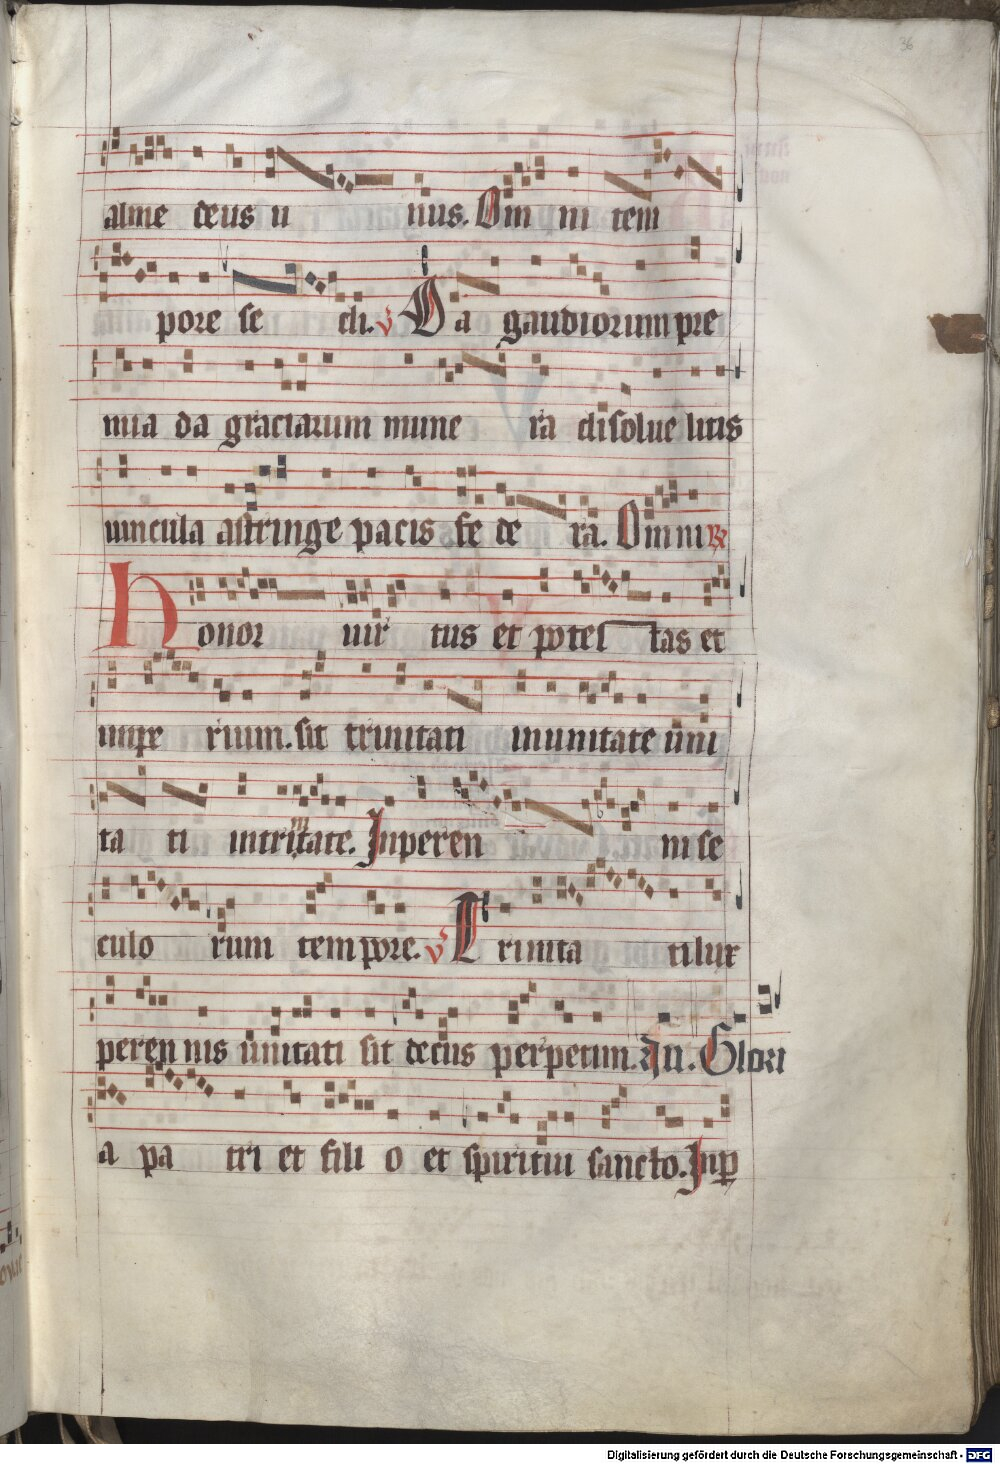 36
alme deus u nus. Om ni tem
pore se cli. v Da gaudiorum pre
mia da graciarum mune ra disolue litis
uincula astringe pacis fe de ra. Omni R
Honor uir tus et potes tas et
impe rium. sit trinitati inunitate uni
ta ti intritate. Inperen ni se
culo rum tempore. v Trinita ti lux
peren nis unitati sit decus perpetim. An. Glori
a pa tri et fili o et spiritui sancto. Inp
Digitalisierung gefördert durch die Deutsche Forschungsgemeinschaft - DFG